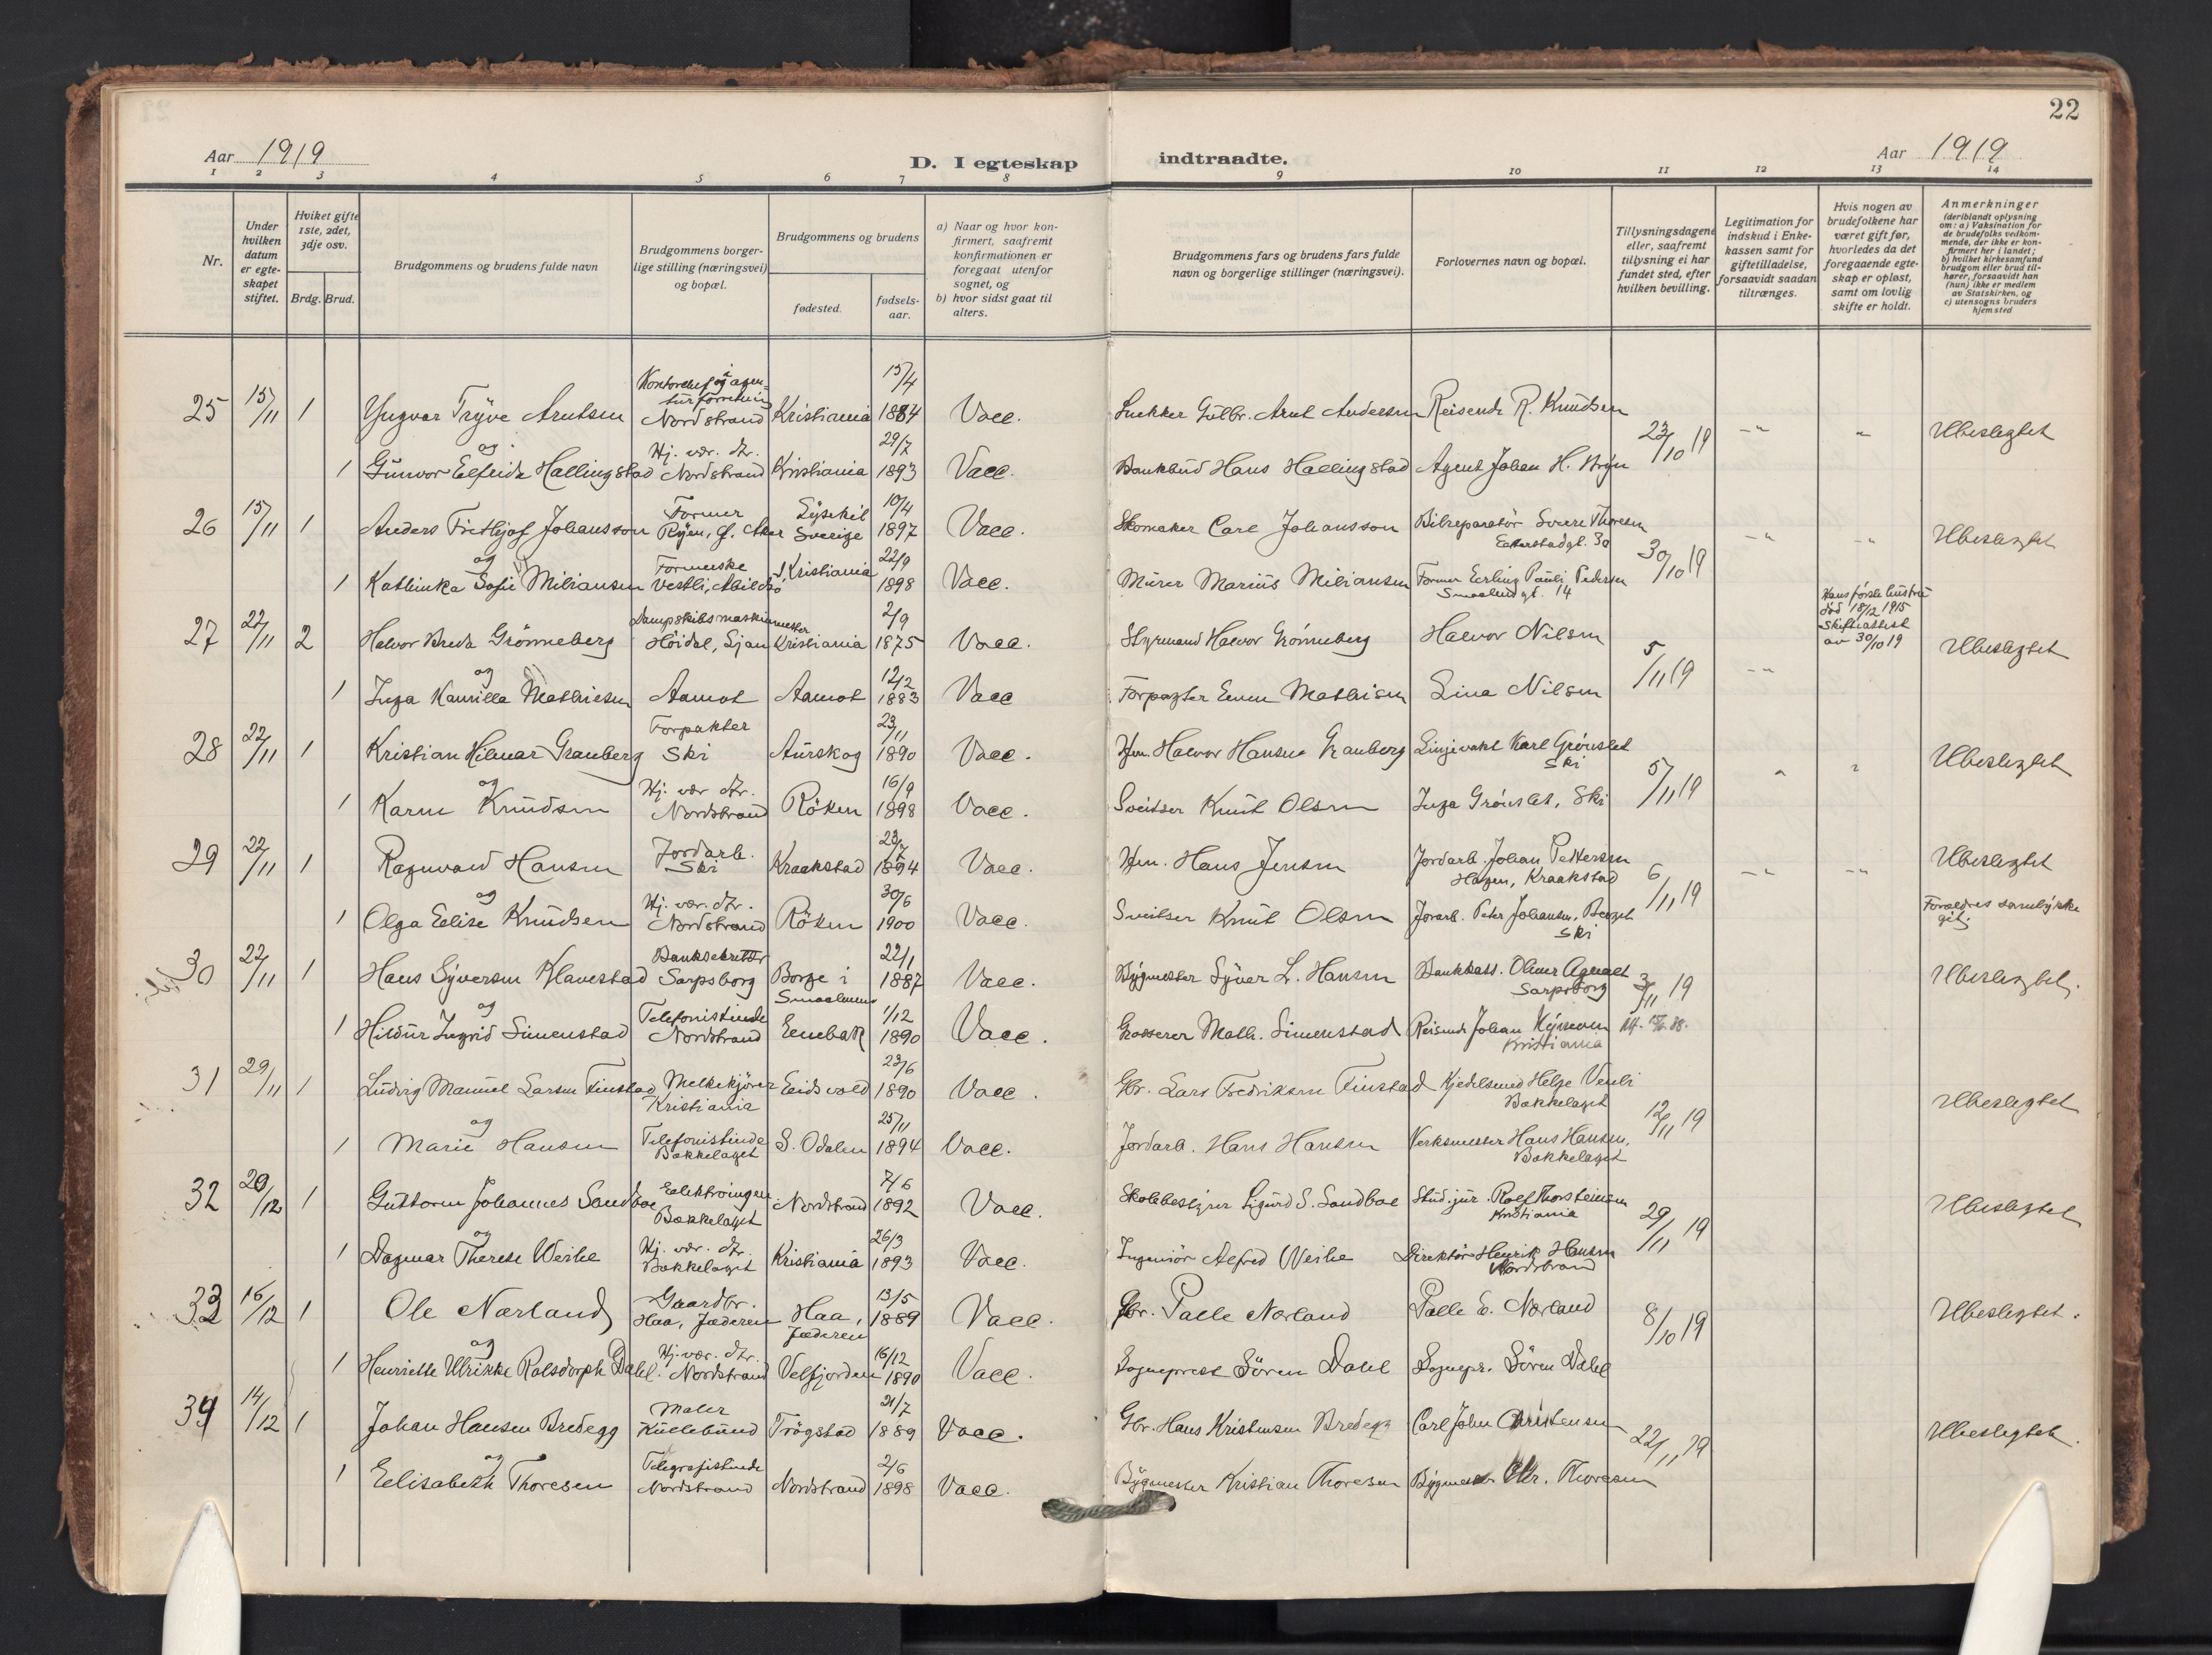 22
Aar 1919
D. I egteskap indtraadte.
Aar 1919
1 2 3 4 5 6 7 8 9 10 11 12 13 14
Nr.
Under hvilken datum er egte-skapet stiftet.
Hviket gifte 1ste, 2det, 3dje osv.
Brdg. Brud.
Brudgommens og brudens fulde navn
Brudgommens borger-lige stilling (næringsvei) og bopæl.
Brudgommens og brudens
fødested.
fødsels-aar.
a) Naar og hvor kon-firmert, saafremt konfirmationen er foregaat utenfor sognet, og
b) hvor sidst gaat til alters.
Brudgommens fars og brudens fars fulde navn og borgerlige stillinger (næringsvei).
Forlovernes navn og bopæl.
Tillysningsdagene eller, saafremt tillysning ei har fundet sted, efter hvilken bevilling.
Legitimation for indskud i Enke-kassen samt for giftetilladelse, forsaavidt saadan tiltrænges.
Hvis nogen av brudefolkene har været gift før, hvorledes da det foregaaende egte-skap er opløst, samt om lovlig skifte er holdt.
Anmerkninger
(deriblandt oplysning om: a) Vaksination for de brudefolks vedkom-mende, der ikke er kon-firmert her i landet; b) hvilket kirkesamfund brudgom eller brud til-hører, forsaavidt han (hun) ikke er medlem av Statskirken, og c) utensogns bruders hjemsted
25 15/11 1 Yngvar Trÿve Arntsen Nordstrand Kristiania 15/4 1884 Vacc. Snekker Gulbr. Arnt Andersen Reisende R. Knudsen 23/10 19 -"- " Ubeslegtet
og
1 Gunvor Elfrida Hallingstad Hj. vær. dtr. Nordstrand Kristiania 29/7 1893 Vacc. Bankbud Hans Hallingstad Agent Johan H. Bryn
26 15/11 1 Anders Frithjof Johansson Former Ryen, Ø. Aker Lysekil Sverige 10/4 1897 Vacc. Skomaker Carl Johansson Bilreparatør Sverre Thoresen Eckerstadgt. 30 30/10 19 -"- -"- Ubeslegtet
og
1 Kathinka Sofie Miliansen Formerske Vestli, Abildsö Kristiania 22/9 1898 Vacc. Murer Marius Miliansen Former Erling Pauli Pedersen Smaalensgt. 14
27 22/11 2 Halvor Breda Grönneberg Dampskibsmaskinmester Höidal, Ljan Kristiania 2/9 1875 Vacc. Styrmand Halvor Grönneberg Halvor Nilsen 5/11 19 -"- Hans første hustru död 18/2 1915 Skifteattest av 30/10 19 Ubeslegtet
og
1 Inga Kamilla Mathiesen Aamot Aamot 12/2 1883 Vacc Forpagter Even Mathisen Lina Nilsen
28 22/11 1 Kristian Hilmar Granberg Forpakter Ski Aurskog 23/11 1890 Vacc. Hm. Halvor Hansen Granberg Linjevakt Karl Grönslet Ski 5/11 19 " " Ubeslegtet
og
1 Karen Knudsen Hj. vær dtr. Nordstrand Röken 16/9 1898 Vacc. Sveitser Knut Olsen Inga Grönslet, Ski
29 22/11 1 Ragnvald Hansen Jordarb. Ski Kraakstad 23/7 1894 Vacc. Hm. Hans Jensen Jordarb. Johan Pettersen Hagen, Kraakstad 6/11 19 -"- -"- Ubeslegtet
og
1 Olga Elise Knudsen Hj. vær. dtr. Nordstrand Röken 30/6 1900 Vacc. Sveitser Knut Olsen Jorarb. Peter Johansen, Berget Ski Foreldres samtykke git.
30 22/11 1 Hans Syversen Klavestad Banksekretær Sarpsborg Borge i Smaalenene 22/1 1887 Vacc. Bygmester Syver L. Hansen Bankkass. Olmer Agnalt Sarpsborg 3/11 19 Ubeslegtet.
og
1 Hildur Ingrid Simenstad Telefonistinde Nordstrand Enebak 1/12 1890 Vacc. Grosserer Math. Simenstad Reisende Johan Kristiania
31 29/11 1 Ludvig Manuel Larsen Finstad Melkekjörer Kristiania Eidsvold 23/6 1890 Vacc. Gbr. Lars Fredriksen Finstad Kjedelsmed Helge Venli Bækkelaget 12/11 19 Ubeslegtet
og
1 Marie Hansen Telefonistinde Bækkelaget S. Odalen 25/11 1894 Vacc. Jordarb. Hans Hansen Verksmester Hans Hansen, Bækkelaget
32 20/12 1 Guttorm Johannes Sandboe Elektroingen. Bækkelaget Nordstrand 7/6 1892 Vacc. Skolebestyrer Sigurd S. Sandboe Stud. jur. Rolf Thorsteinson Kristiania 29/11 19 Ubeslegtet
og
1 Dagmar Therese Weihe Hj. vær. dtr. Bækkelaget Kristiania 26/3 1893 Vacc. Ingeniör Alfred Weihe Direktör Henrik Hansen Nordstrand
33 16/12 1 Ole Nærland Gaardbr. Haa, Jæderen Haa, Jæderen 13/5 1889 Vacc. Gbr. Palle Nærland Palle E. Nærland 8/10 19 Ubeslegtet.
og
1 Henriette Ulrikke Rolsdorph Dahl. Hj. vær. dtr. Nordstrand Velfjorden 16/12 1890 Vacc. Sogneprest Sören Dahl Sognepr. Sören Dahl
34 14/12 1 Johan Hansen Bredegg Maler Kullebund Trögstad 21/7 1889 Vacc. Gbr. Hans Kristensen Bredegg Carl John Christensen 22/11 19 Ubeslegtet.
og
1 Elisabeth Thoresen Telegrafistinde Nordstrand Nordstrand 2/6 1898 Vacc. Bygmester Kristian Thoresen Bygmester Chr. Thoresen